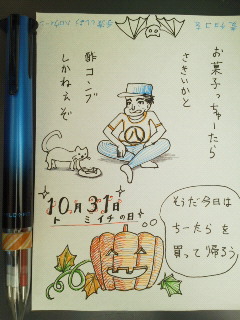 お菓子っちゅーたら
さきいかと
酢コンブ
しかねえぞ
10月31日
トミイチの日
そうだ今日は
ちーたらを
買って帰ろう。